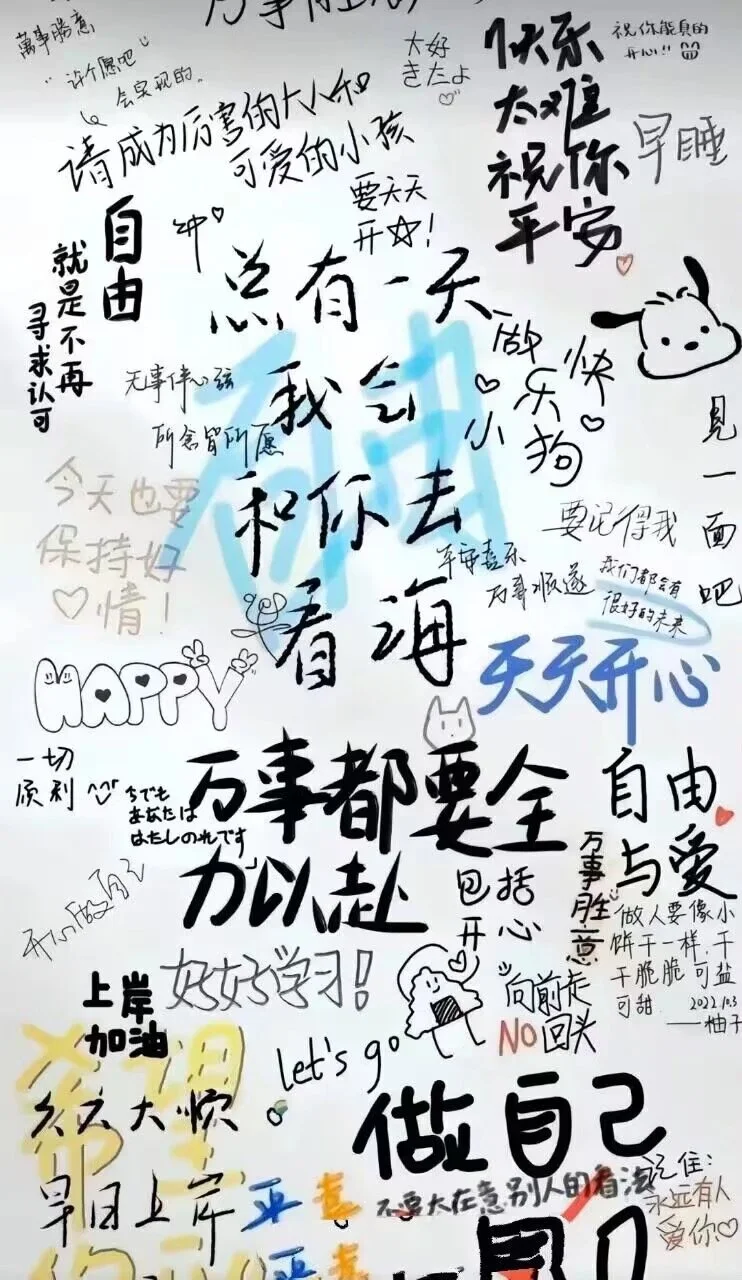 萬事勝意
许个愿吧
会实现的。
请成为厉害的大人和
可爱的小孩
大好
きだよ
快乐
太难
祝你
平安
祝你能真的
开心!!
早睡
要天天
开☆!
自由
就是不再
寻求认可
冲
总有一天
我会
和你去
看海
自由
做
快
乐
小
狗
见一面吧
无事绊心弦
所念皆所愿
今天也要
保持好
♡情!
要记得我
平安喜乐
万事顺遂
我们都会有
很好的未来
HAPPY
天天开心
一切
顺利
万事都要全
力以赴
包括
开心
自由
与爱
万事胜意
あなたは
开心做自己
好好学习!
上岸
加油
向前走
NO回头
做人要像小
饼干一样,干
干脆脆可盐
可甜
2022.10.3
——柚子
let's go
希望
天天大顺
早日上岸
做自己
不要太在意别人的看法
记住:
永远有人
爱你♡
平喜
平喜